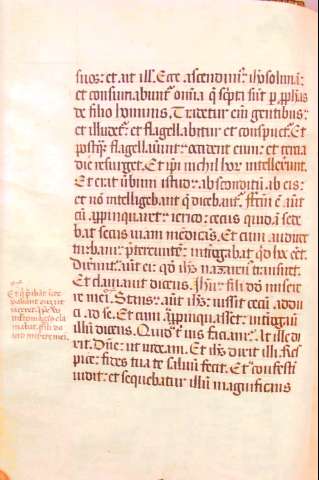 suos: et ait ill'. Ecce ascendim' iherosolimā:
et consumabunt' omīa q̄ scpta sunt p pphas
de filio hominis. Tradetur eī gentibus:
et illudet': et flagellabitur et conspuet'. Et
postq̄ flagellauint: occident eum: et tercia
die resurget. Et ipi nichil hor intellexerunt.
Et erat ūbum istud: absconditū ab eis:
et nō intelligebant q̄ dicebant'. factū ē aut
cū appinquaret: ierico: cecus quidā sede
bat secus uiam mendicās. Et cum audiret
turbam pretereunte: introgabat qd hoc eēt.
Dixerunt aut ei: qd ihs nazaren' transiret.
Et clamauit dicens. Ihu: fili dd miserē
re mei. Stans: aut ihs: iussit cecū addu
ci ad se. Et cum appinquasset: introgauit
illū dicens. Quid t' uis faciam: At ille di
xit. Dn̄e: ut uideam. Et ihs dixit illi. Res
pice: fides tua te saluū fecit. Et confesti
uidit: et sequebatur illū magnificans
mabat: fili da
uid miserē mei.